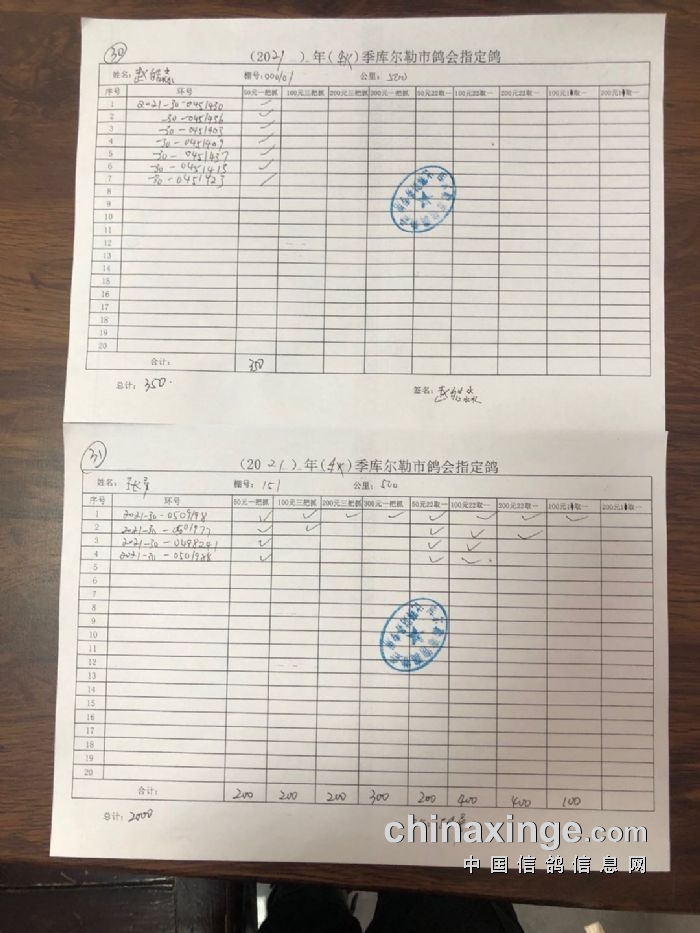 30
(2021)年(秋)季库尔勒市鸽会指定鸽
姓名: 棚号:000101 公里:500
序号 环号 50元一把抓 100元三把抓 200元三把抓 300元一把抓 50元22取一 100元22取一 200元22取一 100元1取一 200元1取一
1 2021-30-0451430 ✓
2 -30-0451436 ✓
3 -30-0451403 ✓
4 -30-0451409 ✓
5 -30-0451437 ✓
6 -30-0451413 ✓
7 -30-0451423 ✓
8
9
10
11
12
13
14
15
16
17
18
19
20
合计: 350
总计: 350.
签名:
31
(2021)年(秋)季库尔勒市鸽会指定鸽
姓名: 棚号:151 公里:500
序号 环号 50元一把抓 100元三把抓 200元三把抓 300元一把抓 50元22取一 100元22取一 200元22取一 100元1取一 200元1取一
1 2021-30- ✓ ✓ ✓ ✓ ✓ ✓ ✓ ✓
2 2021-30-0501977 ✓ ✓ ✓ ✓ ✓
3 2021-30-0498241 ✓ ✓ ✓
4 2021-30-0501988 ✓ ✓ ✓
5
6
7
8
9
10
11
12
13
14
15
16
17
18
19
20
合计: 200 200 200 300 200 400 400 100
总计: 2000
chinaxinge.com
中国信鸽信息网